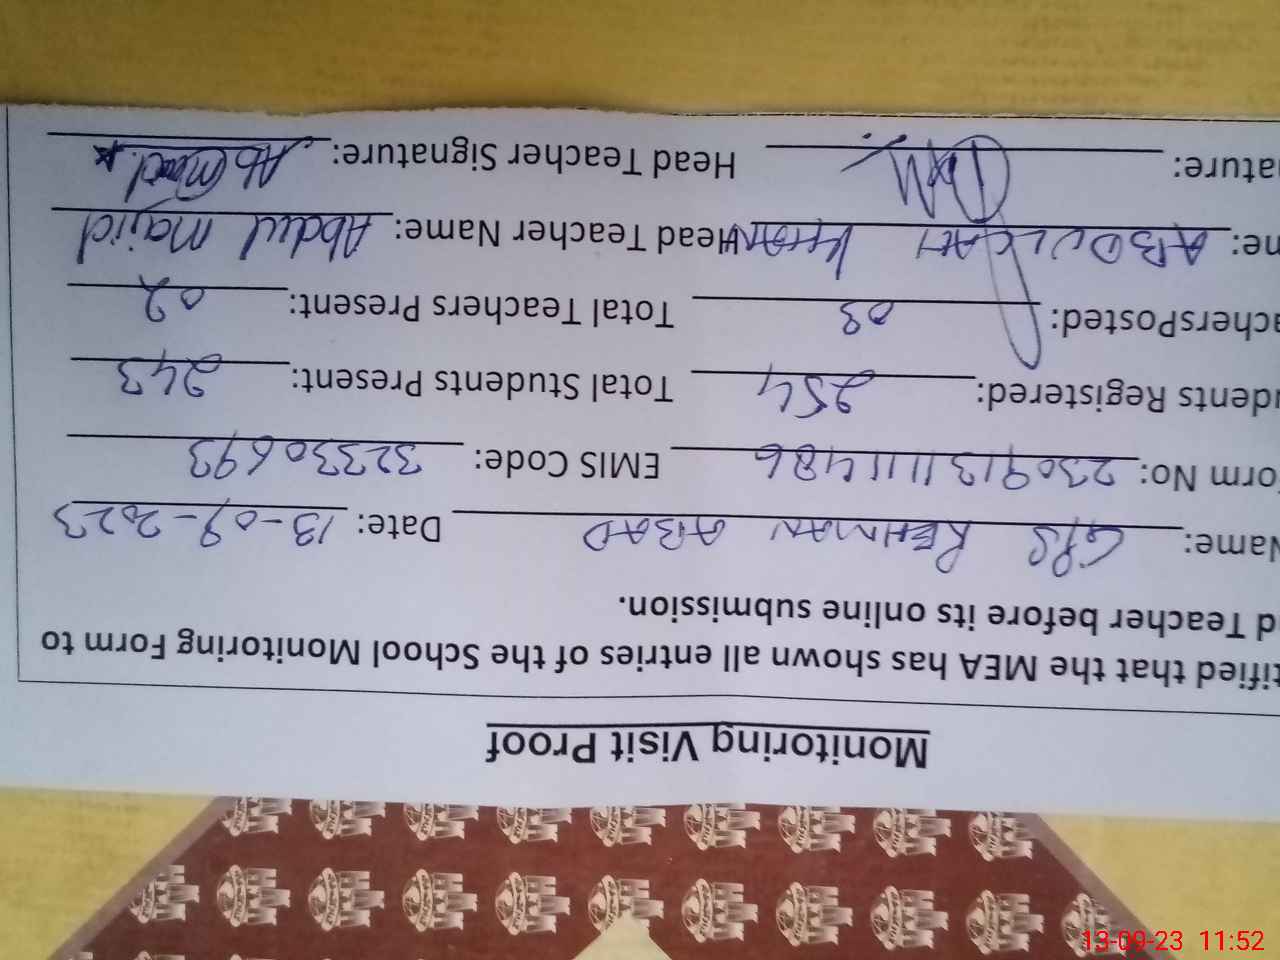 Monitoring Visit Proof
tified that the MEA has shown all entries of the School Monitoring Form to
d Teacher before its online submission.
Name: GPS REHMAN ABAD Date: 13-09-2023
orm No: 230913111486 EMIS Code: 32330693
dents Registered: 254 Total Students Present: 243
achersPosted: 03 Total Teachers Present: 02
ne: ABDUL GANI KHAN Head Teacher Name: Abdul majid
ature: Head Teacher Signature:
13-09-23 11:52